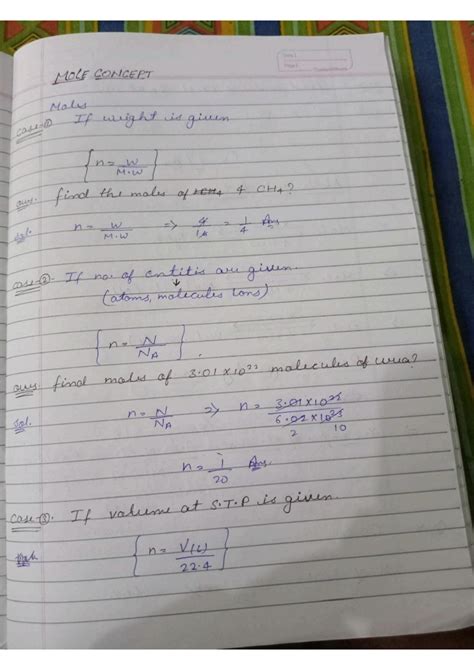 MOLE CONCEPT
Moles
case-① If weight is given
{n = W / M.W}
Ques. find the moles of 4 CH₄?
Sol. n = W / M.W ⇒ 4 / 16 = 1 / 4 Ans
case-②. If no. of entitis are given.
(atoms, molecules Ions)
{n = N / NA}.
Ques. find moles of 3.01 x 10²² molecules of urea?
Sol. n = N / NA ⇒ n = 3.01 x 10²² / 6.02 x 10²³
2 10
n = 1 / 20 Ans.
case-③. If volume at S.T.P is given.
{n = V(L) / 22.4}